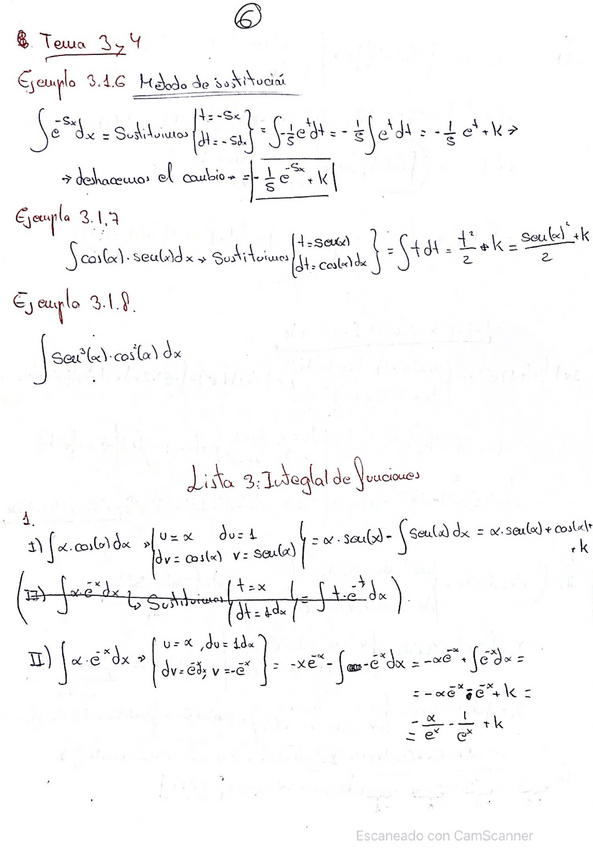 6
Tema 3 y 4
Ejemplo 3.1.6 Método de sustitució
∫e^{-5x}dx = Sustituimos |t=-5x dt=-5dx} = ∫-1/5 e^t dt = -1/5 ∫e^t dt = -1/5 e^t + k →
→ deshacemos el cambio → = |-1/5 e^{-5x} + k|
Ejemplo 3.1.7
∫cos(x)·sen(x)dx → Sustituimos |t=sen(x) dt=cos(x)dx} = ∫t dt = t²/2 + k = sen(x)²/2 + k
Ejemplo 3.1.8.
∫sen³(x)·cos²(x) dx
Lista 3: Integlal de funciones
1.
I) ∫x·cos(x)dx → |u=x du=1 dv=cos(x) v=sen(x)| = x·sen(x) - ∫sen(x)dx = x·sen(x)+cos(x)+
+k
(II) ∫x·e^{-x}dx ↳ Sustituimos |t=x dt=1dx| = ∫t·e^{-t}dx).
II) ∫x·e^{-x}dx → {u=x, du=1dx dv=e^{-x}, v=-e^{-x}} = -xe^{-x} - ∫-e^{-x}dx = -xe^{-x} + ∫e^{-x}dx =
= -xe^{-x} - e^{-x} + k =
= -x/e^x - 1/e^x + k
Escaneado con CamScanner